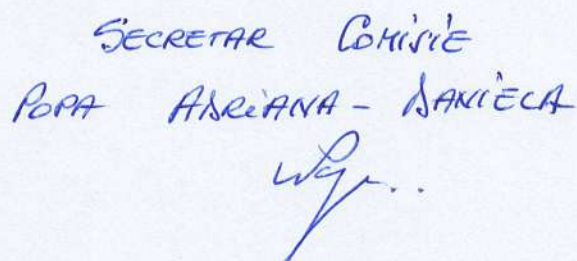 SECRETAR COMISIE
POPA ADRIANA - DANIELA